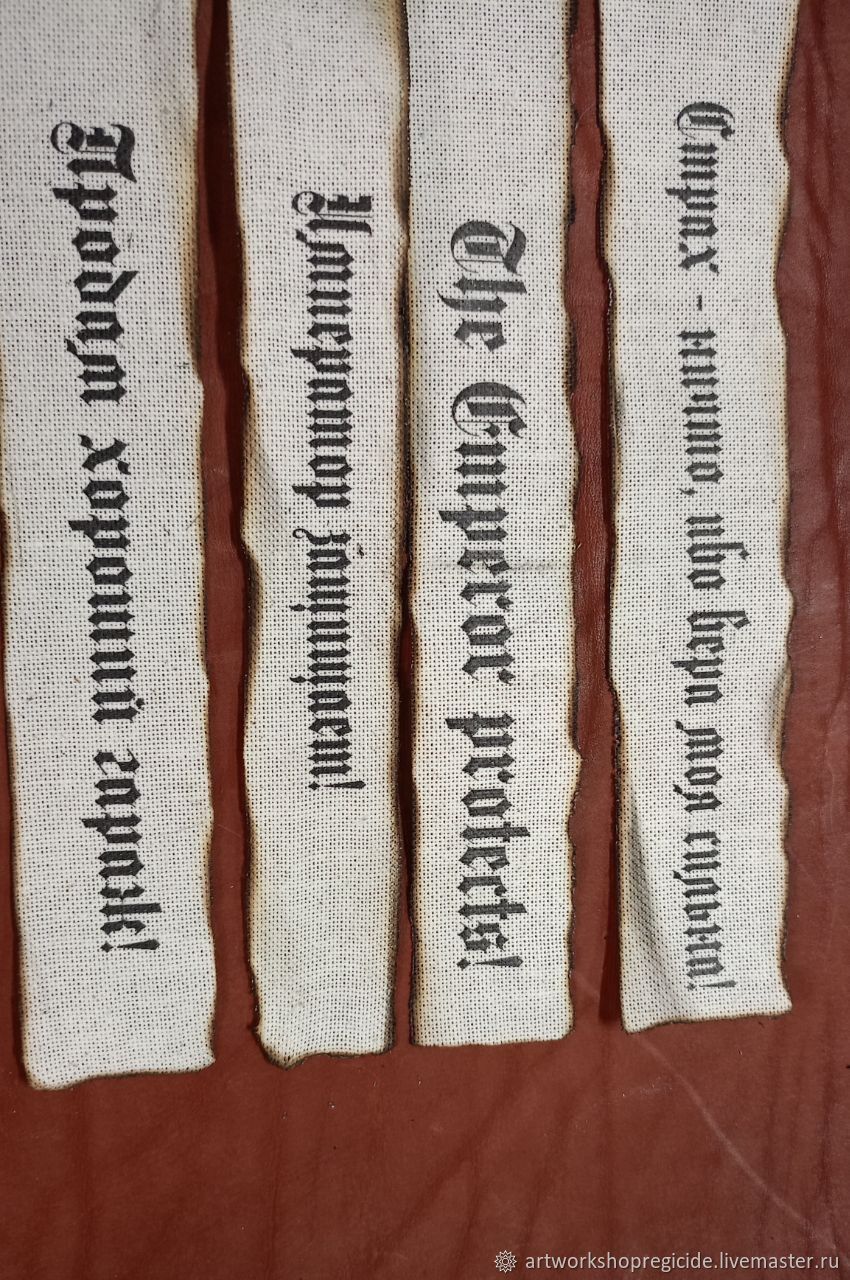 Продам хороший гараж!
Император защищает!
The Emperor protects!
Страх - ничто, ибо вера моя сильна!
artworkshopregicide.livemaster.ru